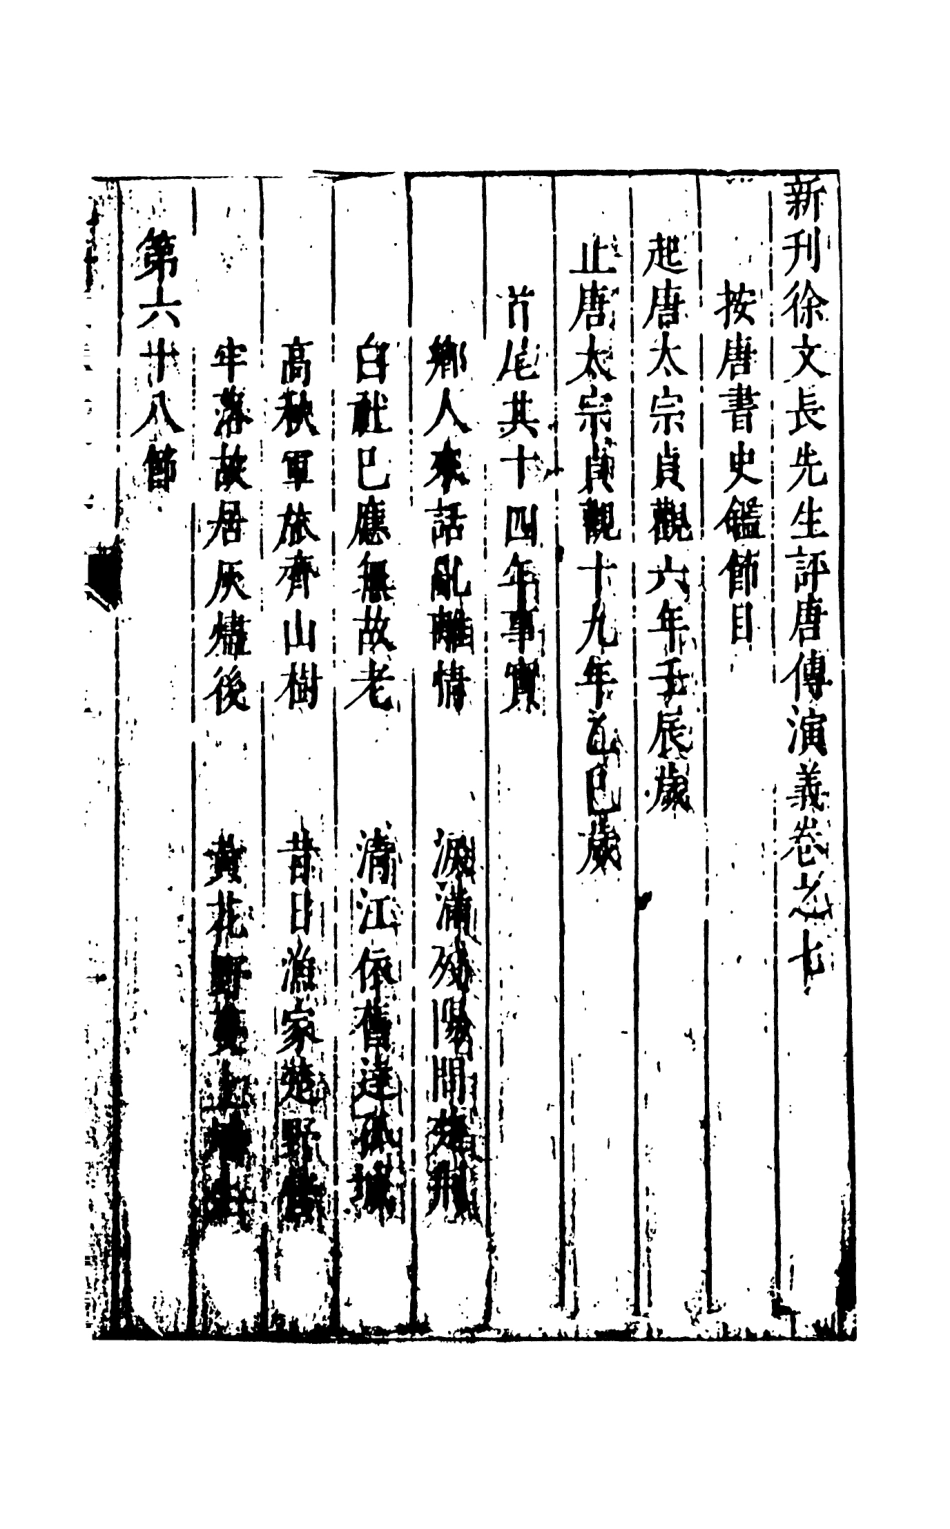 新刊徐文長先生評唐傳演義卷之七
按唐書史鑑節目
起唐太宗貞觀六年壬辰歲
止唐太宗貞觀十九年乙巳歲
首尾共十四年事實
鄉人來話亂離情 淚滿殘陽問楚荆
白社已應無故老 清江依舊遶孤城
高秋軍旅齊山樹 昔日漁家楚野營
牢落故居灰燼後 黃花野蔓上墻生
第六十八節